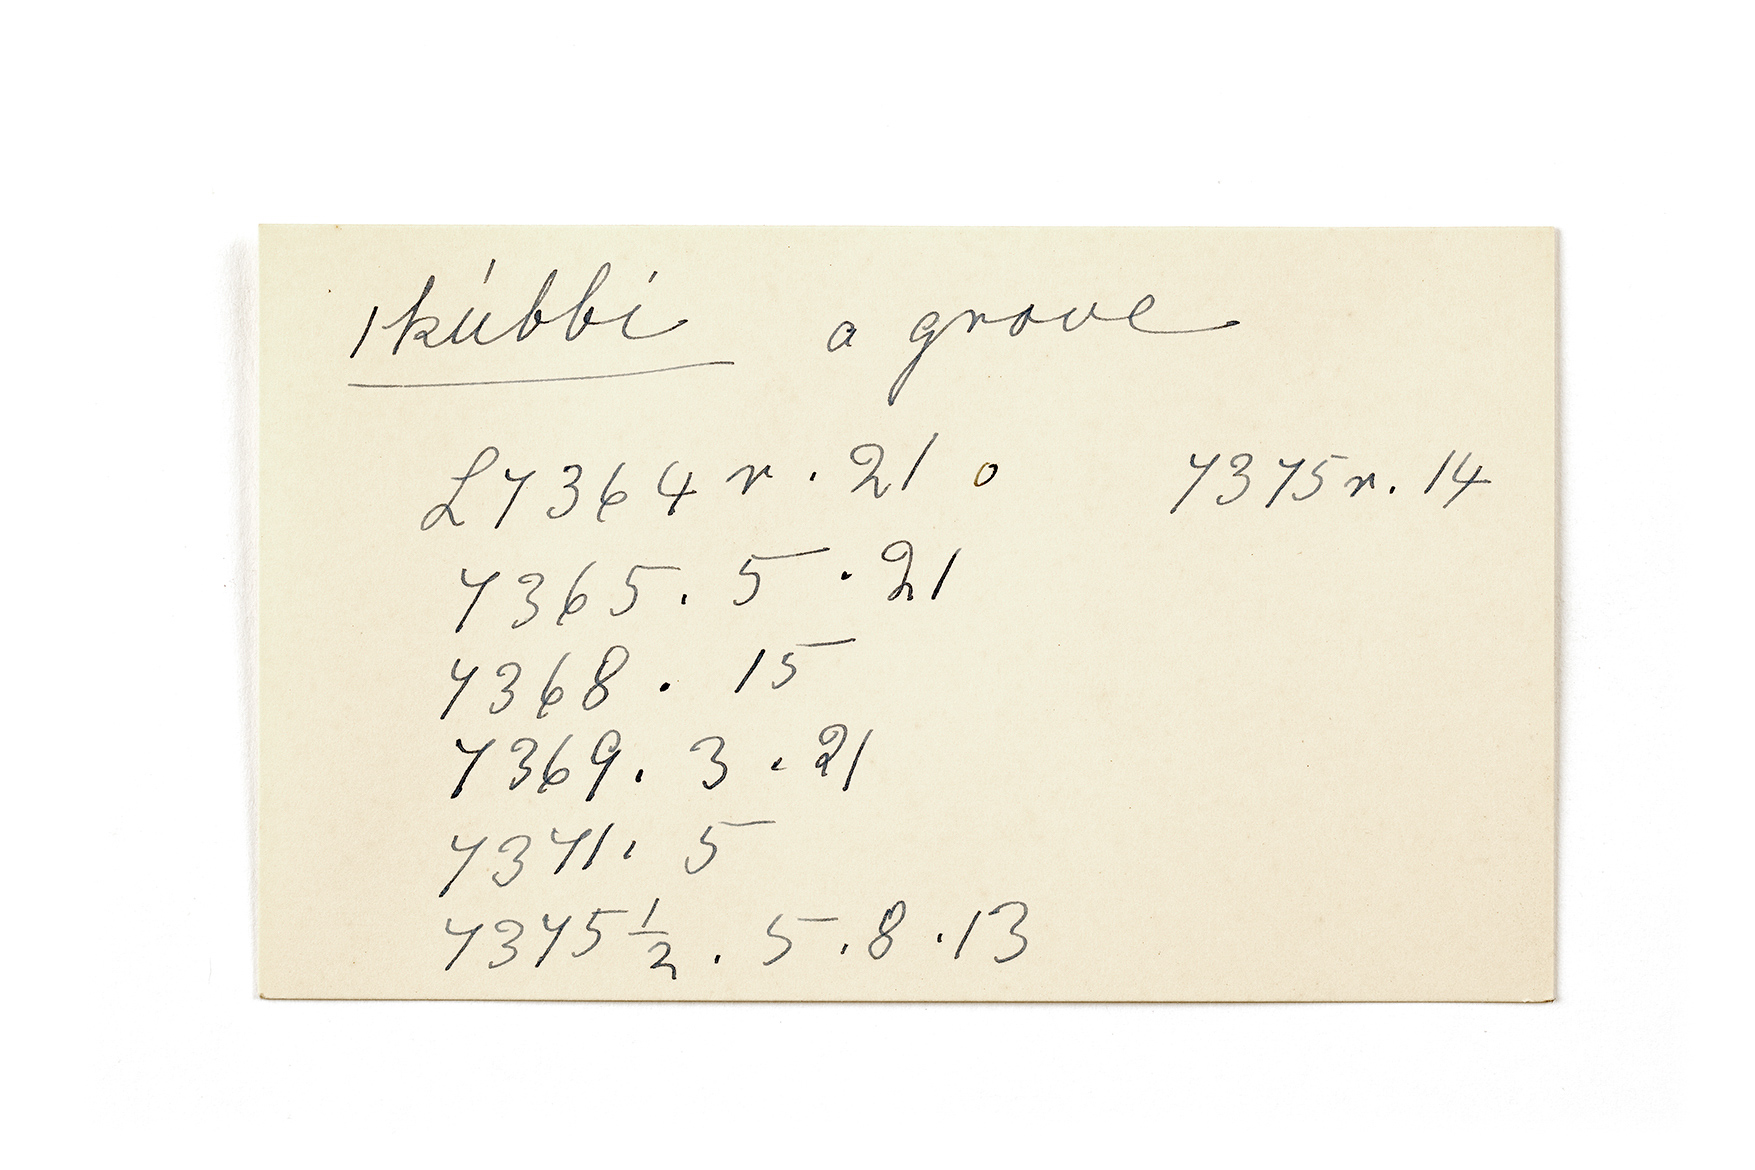 !kúbbi a grove
L7364 r. 21 o 7375 r. 14
7365. 5. 21
7368. 15
7369. 3. 21
7371. 5
7375 1/2. 5. 8. 13